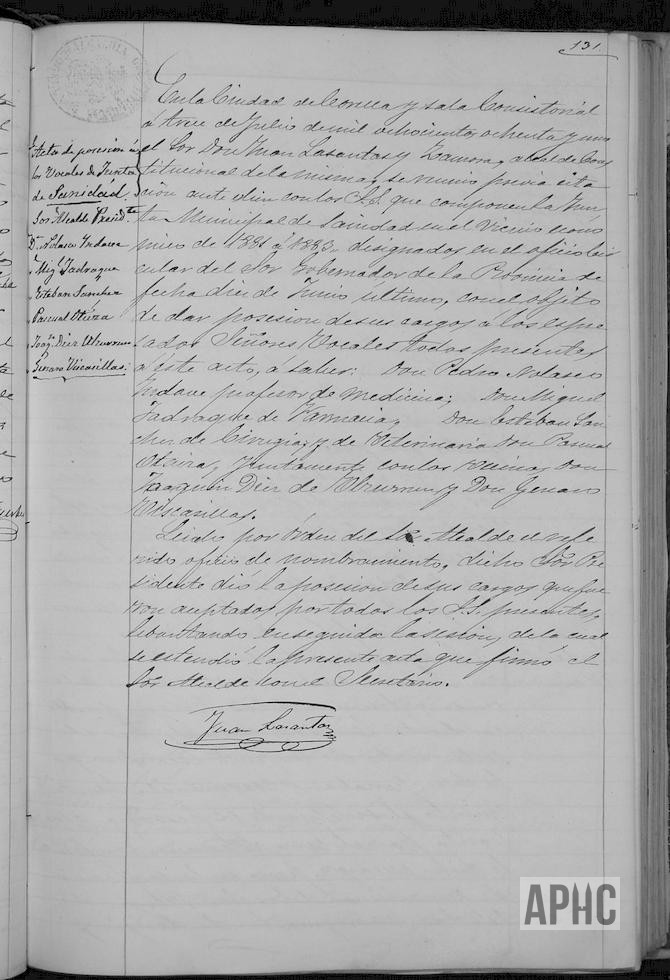 131
Acta de posesion á
los Vocales de Junta
de Sanidad
Sor Alcalde Presid.te
D. Nolasco Yndave
Mig.l Jadraque
Esteban Sanchez
Pascual
Joaq.n Diez Ulzurrun
Genaro Viscasillas
En la Ciudad de Corella y sala Consistorial
á trece de Julio de mil ochocientos ochenta y uno
el Sor Don Juan Lasantas y Zamora, alcalde Cons
titucional de la misma, se reunio previa cita
cion ante diem con los S.S. que componen la Jun
ta Municipal de Sanidad en el Vienio econo
mico de 1881 á 1883, designados en el oficio cir
cular del Sor Gobernador de la Provincia de
fecha diez de Junio último, con el objeto
de dar posesion de sus cargos á los espre
sados Señores Vocales todos presentes
á este acto, a saber: Don Pedro Nolasco
Yndave profesor de medicina; Don Miguel
Jadraque de Farmacia, Don Esteban San
chez de Cirugia; y de Veterinaria Don Pascual
y juntamente con los Vecinos Don
Joaquin Diez de Ulzurrun y Don Genaro
Viscasillas.
Leido por órden del Sor Alcalde el refe
rido oficio de nombramiento, dicho Sor Pre
sidente dió la posesion de sus cargos que fue
ron aceptados por todos los S.S. presentes,
lebantando enseguida la sesion, de la cual
se estendió la presente acta que firmó el
Sor Alcalde con el Secretario.
Juan Lasantas
APHC